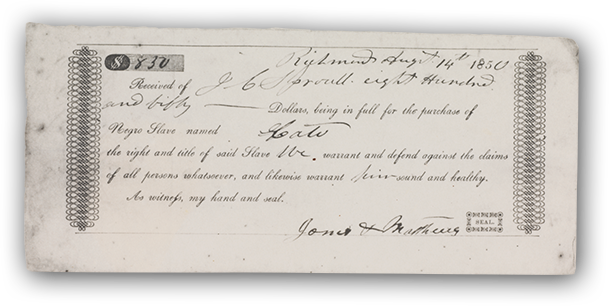 $ 850
Richmond Augt 14th 1850
Received of J C Sproull eight Hundred
and fifty — Dollars, being in full for the purchase of
Negro Slave named Cato
the right and title of said Slave We. warrant and defend against the claims
of all persons whatsoever, and likewise warrant him sound and healthy.
As witness, my hand and seal.
Jones & Matthews SEAL.